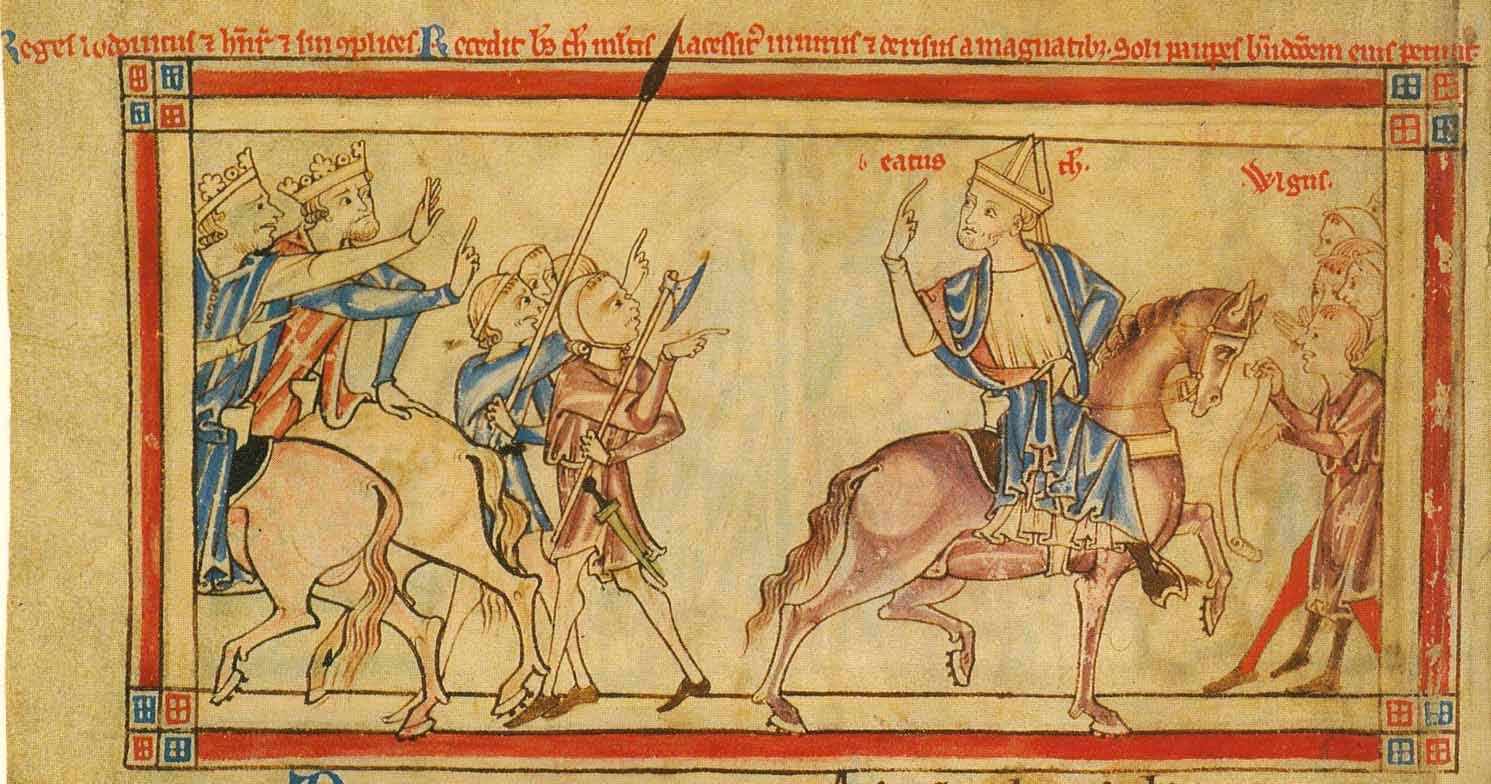 Reges lodouicus ⁊ hn̄r̄ ⁊ sui ↄplices Recedit bs̄ th̄ mestis lacessit᷒ iniuriis ⁊ derisus a magnatib᷒. Soli paup̱es bn̄dcōem eius petunt.
beatus th̄.
Wlgus.